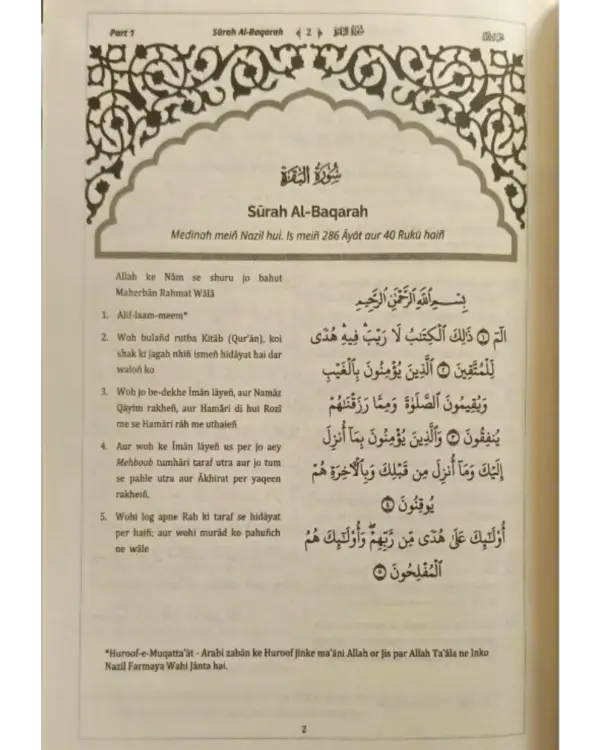 Part 1 Sūrah Al-Baqarah ﴾ 2 ﴿
سُوْرَةُ الْبَقَرَة
Sūrah Al-Baqarah
Medinah meiñ Nazil hui. Is meiñ 286 Āyāt aur 40 Rukū haiñ
Allah ke Nām se shuru jo bahut
Maherbān Rahmat Wālā
1. Alif-laam-meem*
2. Woh bulañd rutba Kitāb (Qur'ān), koi
shak ki jagah nhiñ ismeñ hidāyat hai dar
waloñ ko
3. Woh jo be-dekhe Īmān lāyeñ, aur Namāz
Qāyim rakheñ, aur Hamāri di hui Rozī
me se Hamāri rāh me uthaieñ
4. Aur woh ke Īmān lāyeñ us per jo aey
Mehboob tumhāri taraf utra aur jo tum
se pahle utra aur Ākhirat per yaqeen
rakheiñ.
5. Wohi log apne Rab ki taraf se hidāyat
per haiñ; aur wohi murād ko pahuñch
ne wāle
بِسْمِ اللَّهِ الرَّحْمَٰنِ الرَّحِيمِ
الٓمٓ ۝١ ذَٰلِكَ الْكِتَٰبُ لَا رَيْبَ ۛ فِيهِ ۛ هُدًى
لِّلْمُتَّقِينَ ۝٢ الَّذِينَ يُؤْمِنُونَ بِالْغَيْبِ
وَيُقِيمُونَ الصَّلَوٰةَ وَمِمَّا رَزَقْنَٰهُمْ
يُنفِقُونَ ۝٣ وَالَّذِينَ يُؤْمِنُونَ بِمَآ أُنزِلَ
إِلَيْكَ وَمَآ أُنزِلَ مِن قَبْلِكَ وَبِالْءَاخِرَةِ هُمْ
يُوقِنُونَ ۝٤
أُو۟لَٰٓئِكَ عَلَىٰ هُدًى مِّن رَّبِّهِمْ ۖ وَأُو۟لَٰٓئِكَ هُمُ
الْمُفْلِحُونَ ۝٥
*Huroof-e-Muqatta'āt - Arabi zabān ke Huroof jinke ma'āni Allah or Jis par Allah Ta'āla ne Inko
Nazil Farmaya Wahi Jānta hai.
2